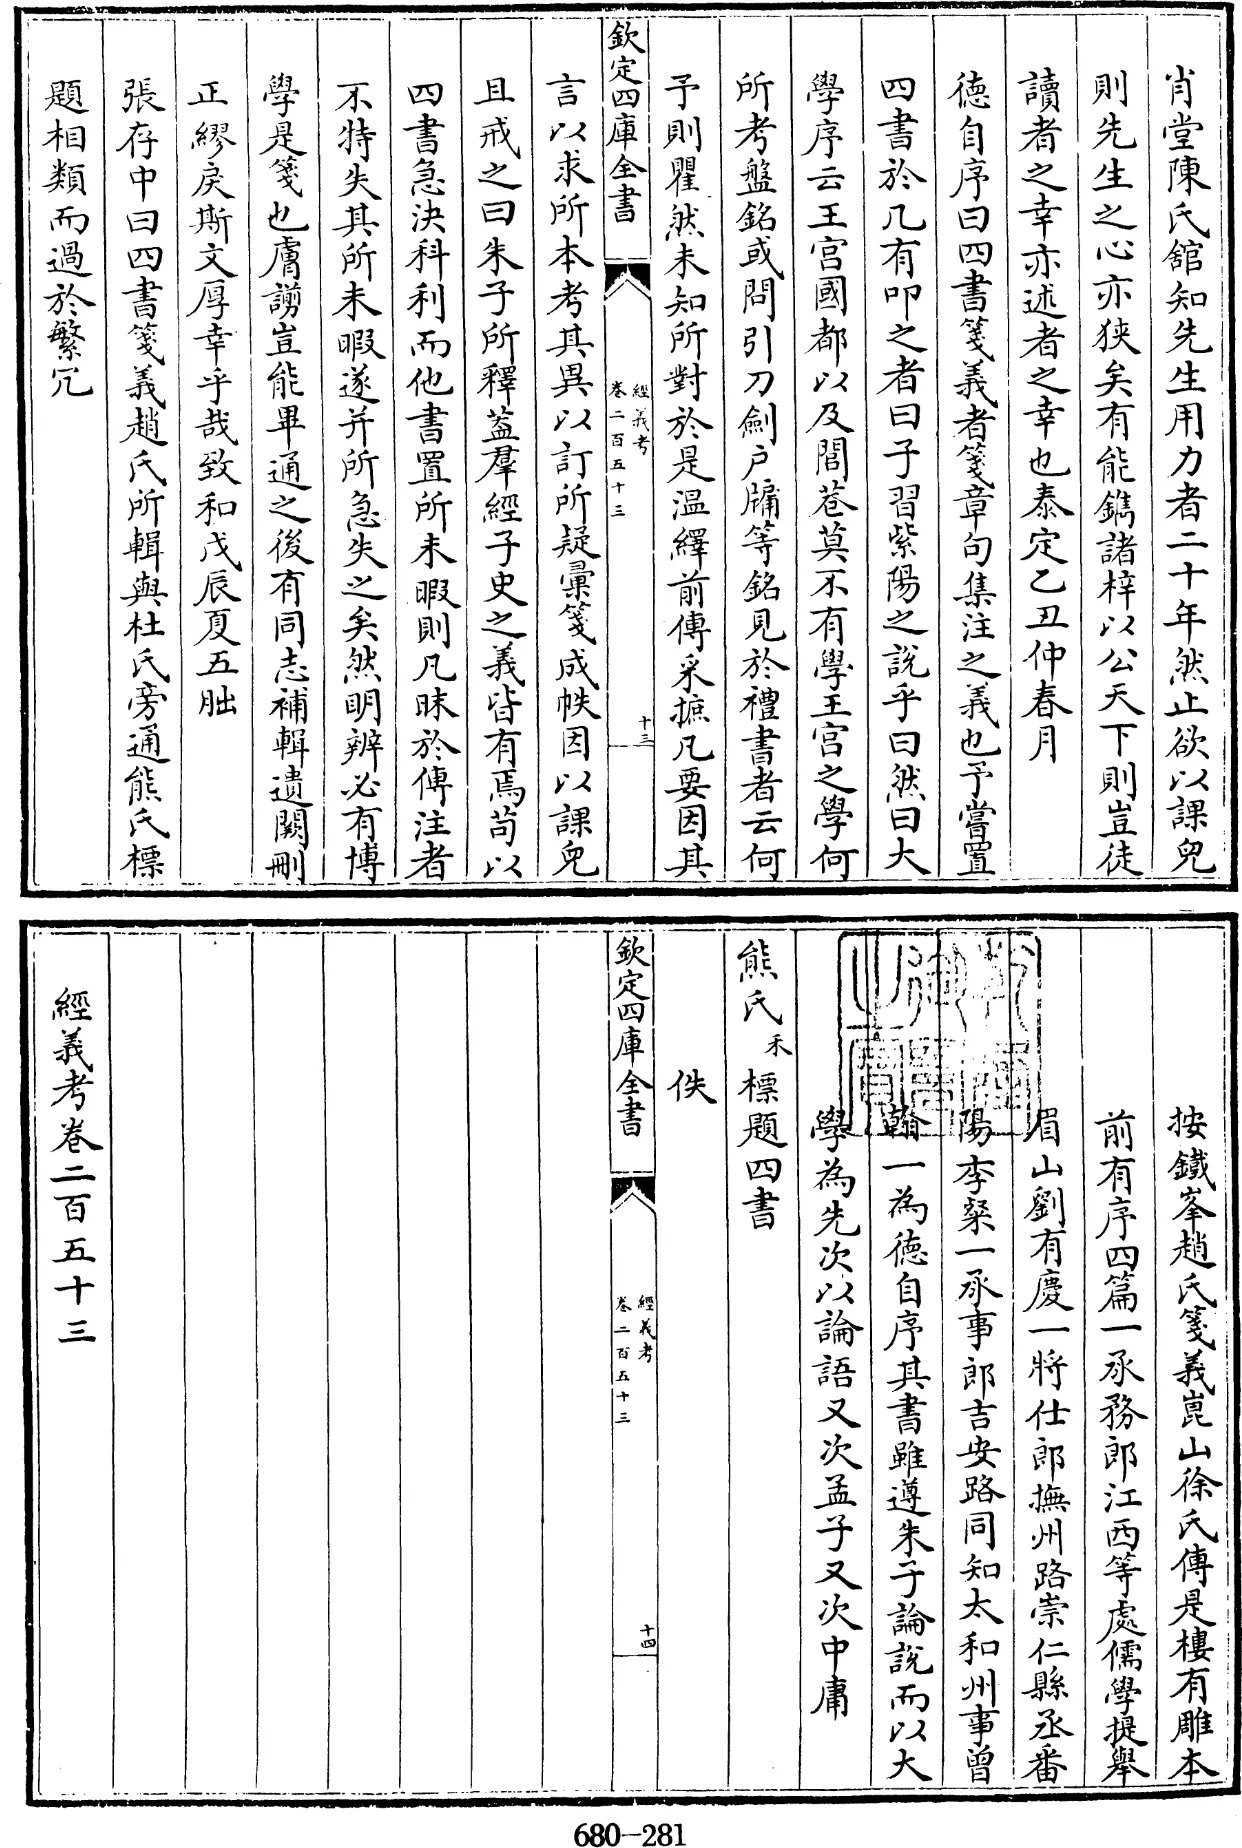 肖堂陳氏舘知先生用力者二十年然止欲以課兒
則先生之心亦狹矣有能鐫諸梓以公天下則豈徒
讀者之幸亦述者之幸也泰定乙丑仲春月
德自序曰四書箋義者箋章句集注之義也予嘗置
四書於几有叩之者曰子習紫陽之說乎曰然曰大
學序云王宮國都以及閭巷莫不有學王宮之學何
所考盤銘或問引刀劍户牖等銘見於禮書者云何
予則瞿然未知所對於是温繹前傳采摭凡要因其
欽定四庫全書
經義考
卷二百五十三
十三
言以求所本考其異以訂所疑彙箋成帙因以課兒
且戒之曰朱子所釋葢羣經子史之義皆有焉苟以
四書急決科利而他書置所未暇則凡昧於傳注者
不特失其所未暇遂并所急失之矣然明辨必有博
學是箋也膚謭豈能畢通之後有同志補輯遺闕刪
正繆戾斯文厚幸乎哉致和戊辰夏五朏
張存中曰四書箋義趙氏所輯與杜氏旁通熊氏標
題相類而過於繁冗
按鐵峯趙氏箋義崑山徐氏傳是樓有雕本
前有序四篇一承務郎江西等處儒學提舉
眉山劉有慶一將仕郎撫州路崇仁縣丞番
陽李粲一承事郎吉安路同知太和州事曾
翰一為德自序其書雖遵朱子論說而以大
學為先次以論語又次孟子又次中庸
熊氏禾標題四書
佚
欽定四庫全書
經義考
卷二百五十三
十四
經義考卷二百五十三
680-281